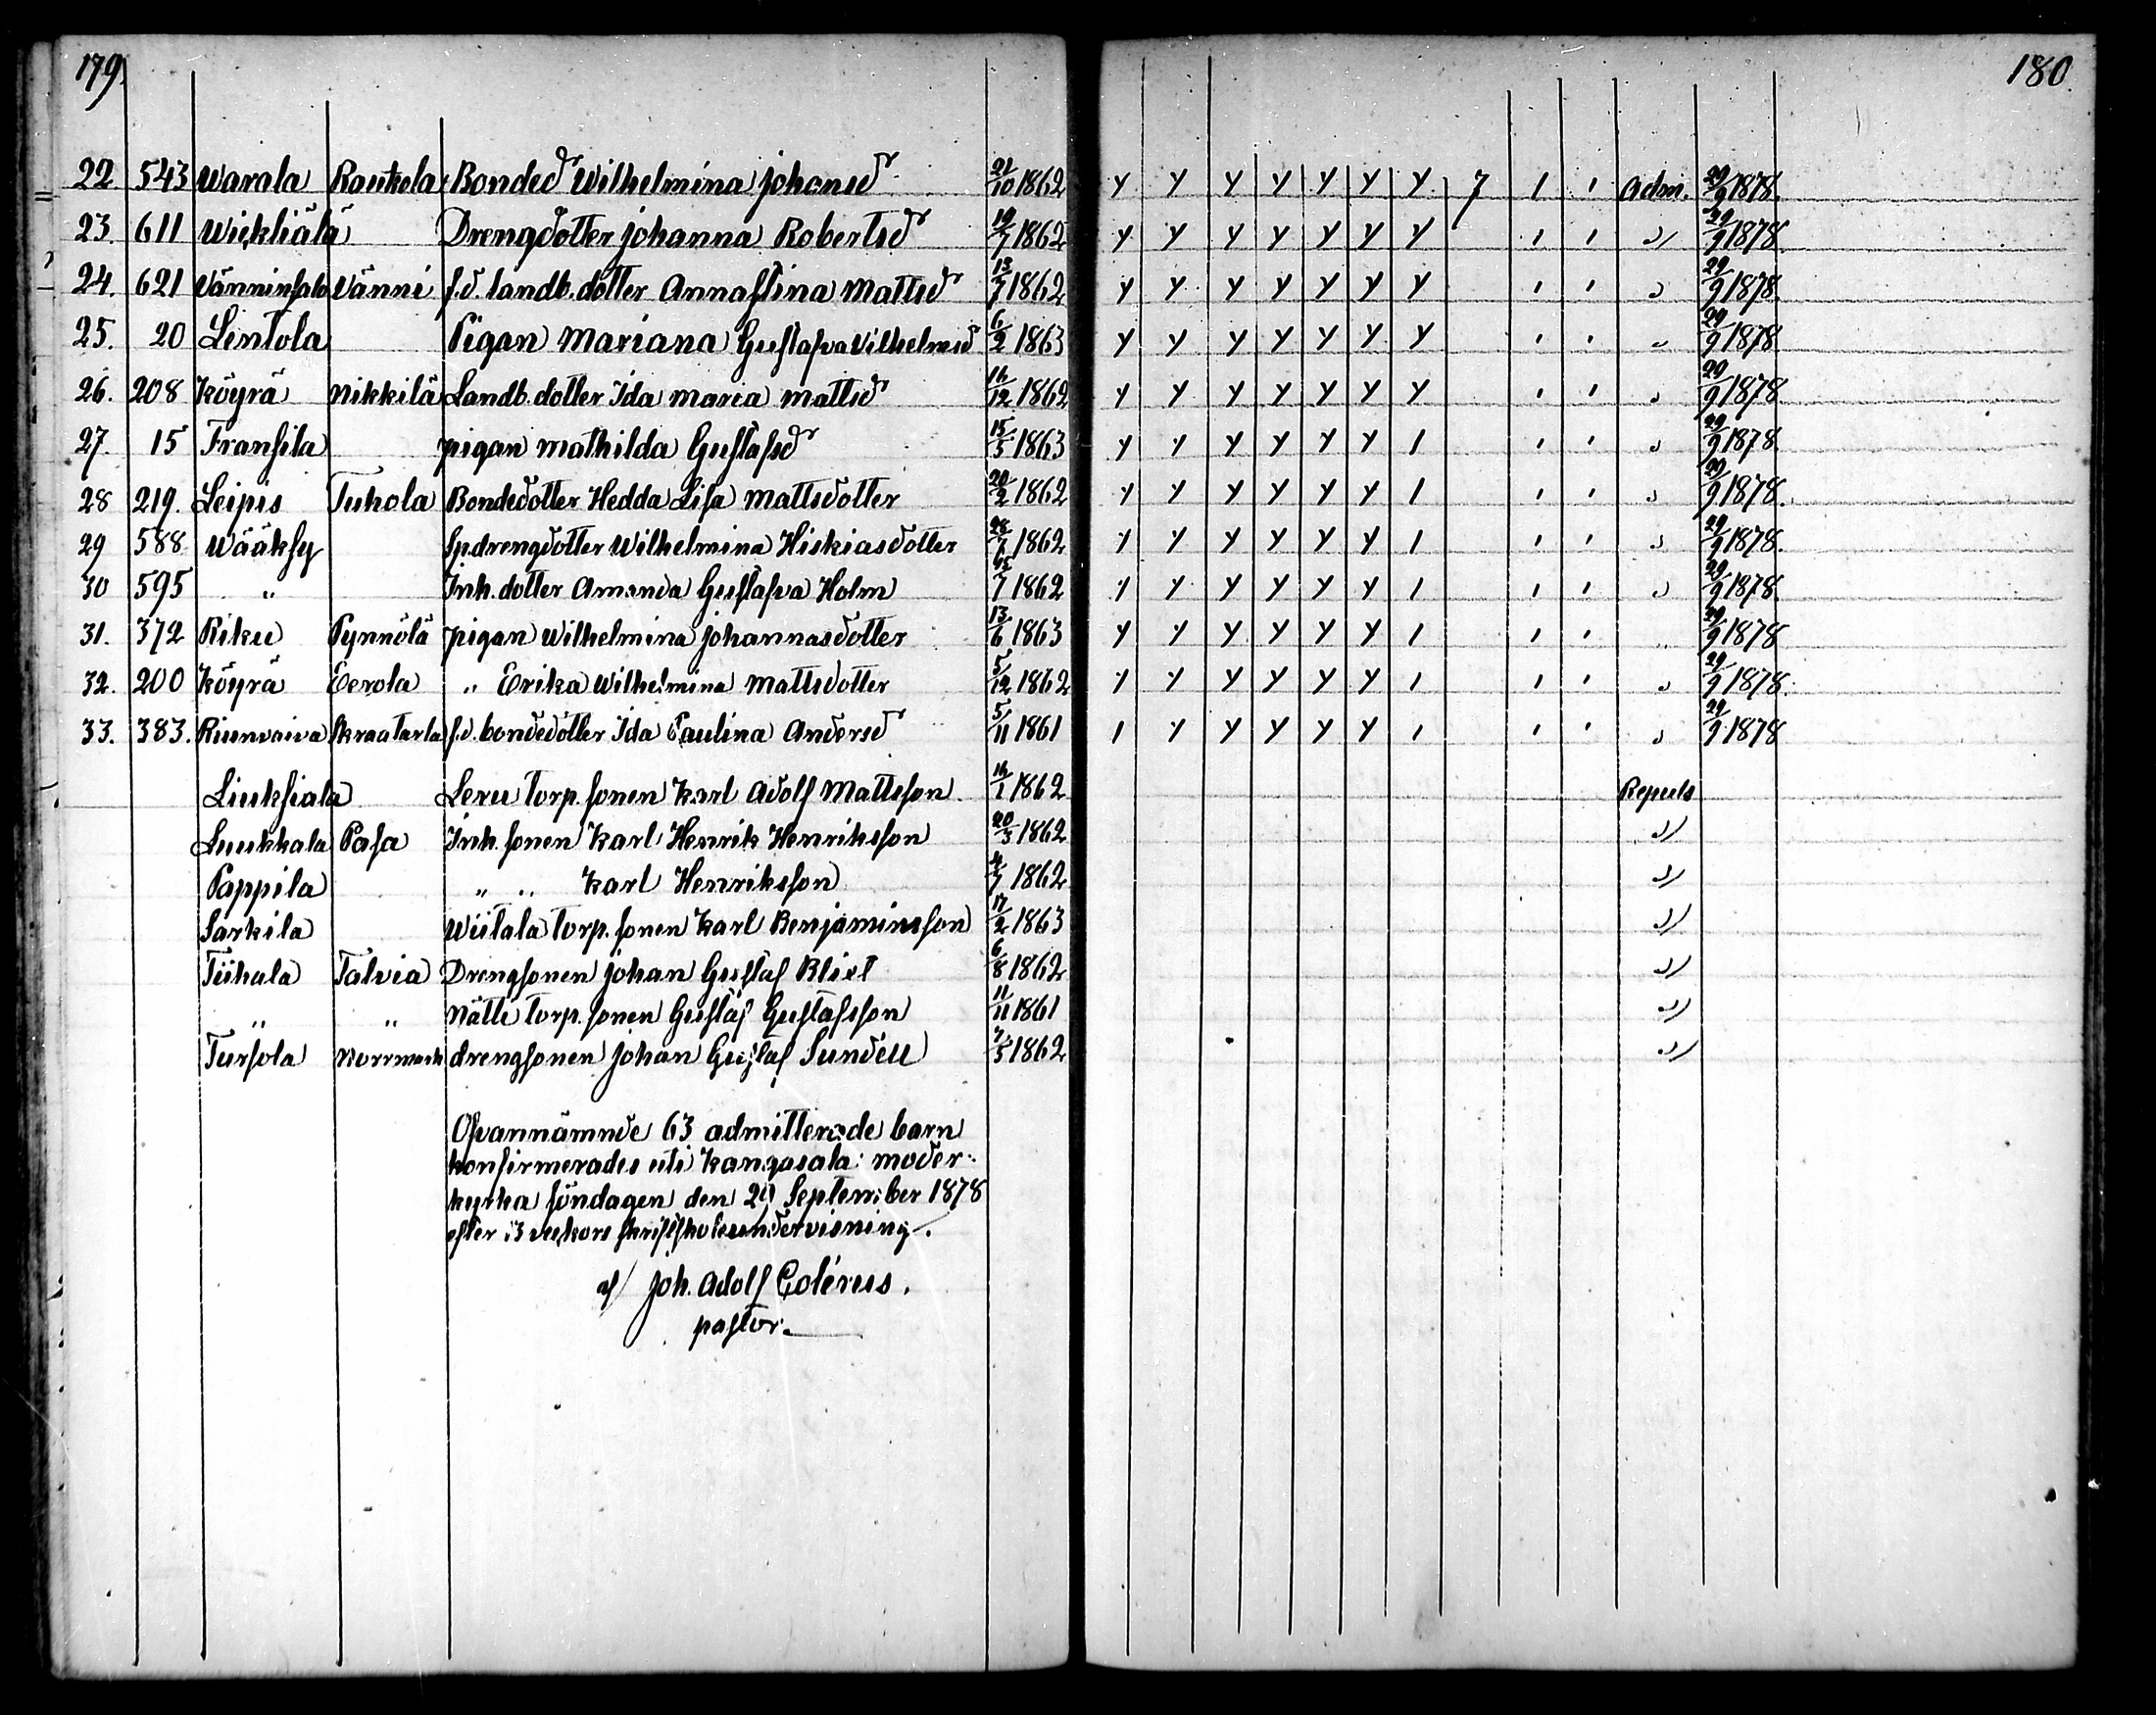 179. 180.
22. 543 Warala Rautiola Bonded Wilhelmina Johansd 21/10 1862 y y y y y y y 7 1 1 Adm. 29/9 1878.
23. 611 Wickliälä Drengdotter Johanna Robertsd 19/7 1862 y y y y y y y 1 1 d/ 29/9 1878
24. 621 Vänninsalo Vänni f.d. landb. dotter Annastina Mattsd 13/7 1862 y y y y y y y 1 1 d 29/9 1878
25. 20 Lentola Pigan Mariana Gustafva Vilhelmsd 6/2 1863 y y y y y y y 1 1 " 29/9 1878
26. 208 Köyrä Nikkilä Landb. dotter Ida Maria Mattsd 16/12 1862 y y y y y y y 1 1 d 29/9 1878
27. 15 Fransila pigan Mathilda Gustafsd 15/5 1863 y y y y y y 1 1 1 d 29/9 1878
28 219. Leipis Tuhola Bondedotter Hedda Lisa Mattsdotter 20/2 1862 y y y y y y 1 1 1 d 29/9 1878.
29 588 Wääksy Sp.drengdotter Wilhelmina Hiskiasdotter 28/7 1862 y y y y y y 1 1 1 d 29/9 1878.
30 595 " Inh. dotter Amanda Gustafva Holm 7 1862 y y y y y y 1 1 1 d 29/9 1878
31. 372 Riku Pynnölä pigan Wilhelmina Johannasdotter 13/6 1863 y y y y y y 1 1 1 " 29/9 1878
32. 200 Köyrä Eerola " Erika Wilhelmina Mattsdotter 5/12 1862 y y y y y y 1 1 1 d 29/9 1878.
33. 383. Riunvaiva Skraatarla f.d. bondedotter Ida Paulina Andersd 5/11 1861 1 y y y y y 1 1 1 d 29/9 1878
Liuksiala Leru torp. sonen Karl Adolf Mattsson 16/1 1862 Repuls
Luukkala Pasa Inh. sonen Karl Henrik Henriksson 20/3 1862 d/
Pappila " " Karl Henriksson 4/7 1862 d/
Sarkila Wiitala torp. sonen Karl Benjaminsson 17/2 1863 d/
Tiihala Talvia Drengsonen Johan Gustaf Blixt 6/8 1862 d/
" " Nätti torp. sonen Gustaf Gustafsson 11/11 1861 d/
Tursola Norrmark drengsonen Johan Gustaf Sundell 7/5 1862 d/
Ofvannämnde 63 admitterade barn
konfirmerades uti Kangasala moder-
kyrka söndagen den 29 September 1878
efter 3 veckors skriftskoleundervisning.
af Joh. Adolf Colérus.
pastor.